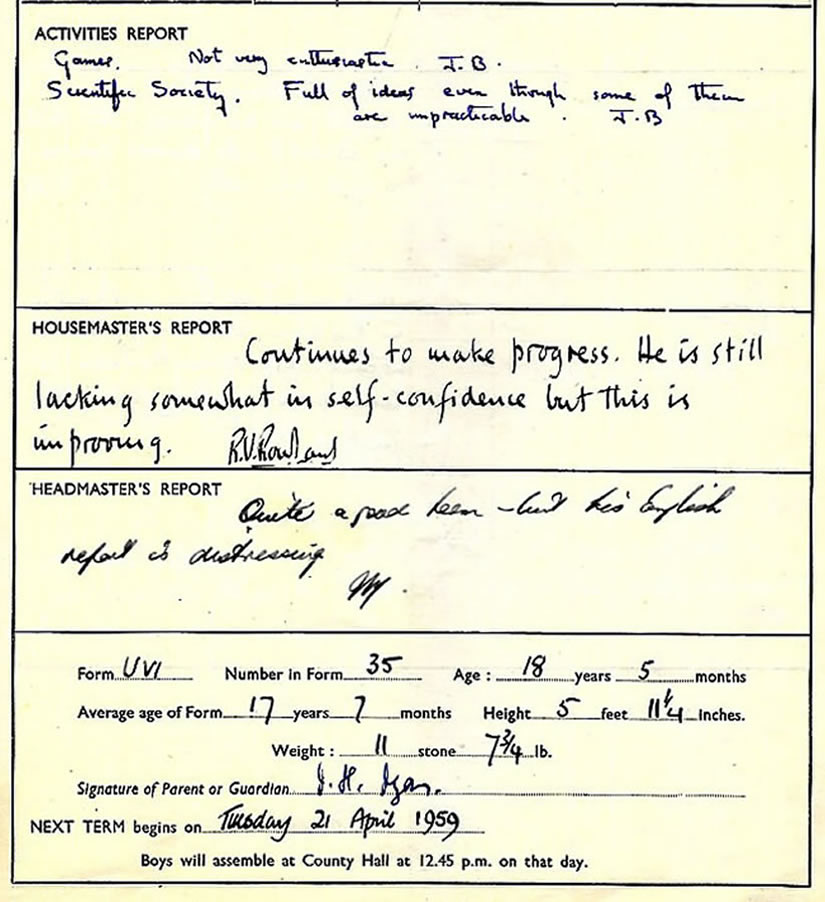 ACTIVITIES REPORT
Games. Not very enthusiastic. J.B.
Scientific Society. Full of ideas even though some of them
are impracticable. J.B
HOUSEMASTER'S REPORT
Continues to make progress. He is still
lacking somewhat in self-confidence but this is
improving. R.V.Rowland
HEADMASTER'S REPORT
Quite a good term - but his English
report is distressing
Form UVI Number in Form 35 Age: 18 years 5 months
Average age of Form 17 years 7 months Height 5 feet 11 1/4 inches.
Weight: 11 stone 7 3/4 lb.
Signature of Parent or Guardian J. H.
NEXT TERM begins on Tuesday 21 April 1959
Boys will assemble at County Hall at 12.45 p.m. on that day.